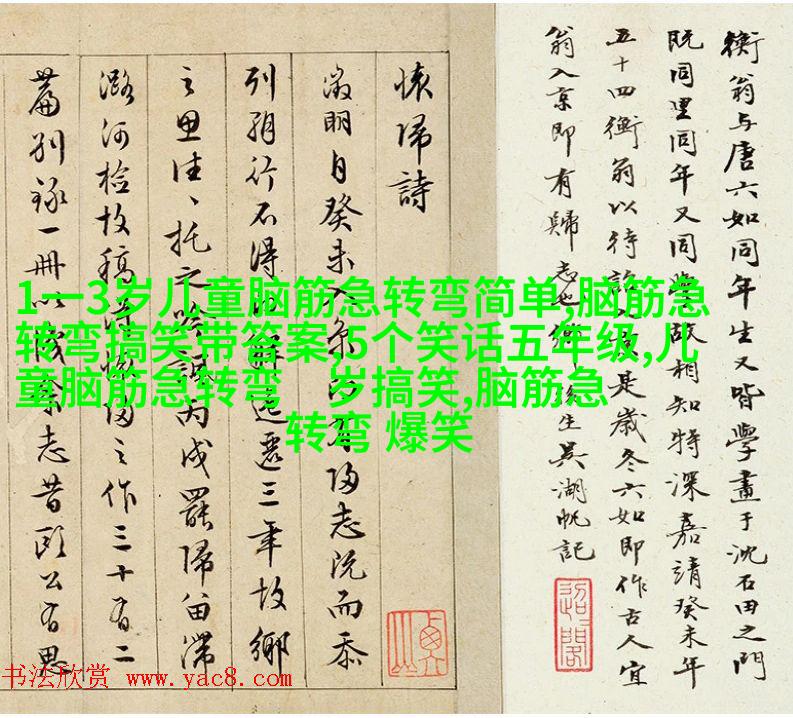 衡翁与唐六如同年生又皆學畫于沈石田之門
既同里同年又同學故相知特深嘉靖癸未年
五十四衡翁以待詔入是歲冬六如即作古人宜
翁入京即有歸志也鄉後生吳湖帆記
懷歸詩
徵明自癸未入京即有歸志既而忝
列朝行不得即解迤邐三年故鄉
之思往、托之吟諷丙戌罷歸舟滯
潞河檢故稿得懷歸之作三十有二
篇別錄一冊以識余志昔歐公有思
1一3岁儿童脑筋急转弯简单,脑筋急
转弯搞笑带答案,5个笑话五年级,儿
童脑筋急转弯 岁搞笑,脑筋急
转弯 爆笑
书法欣赏 www.yac8.com